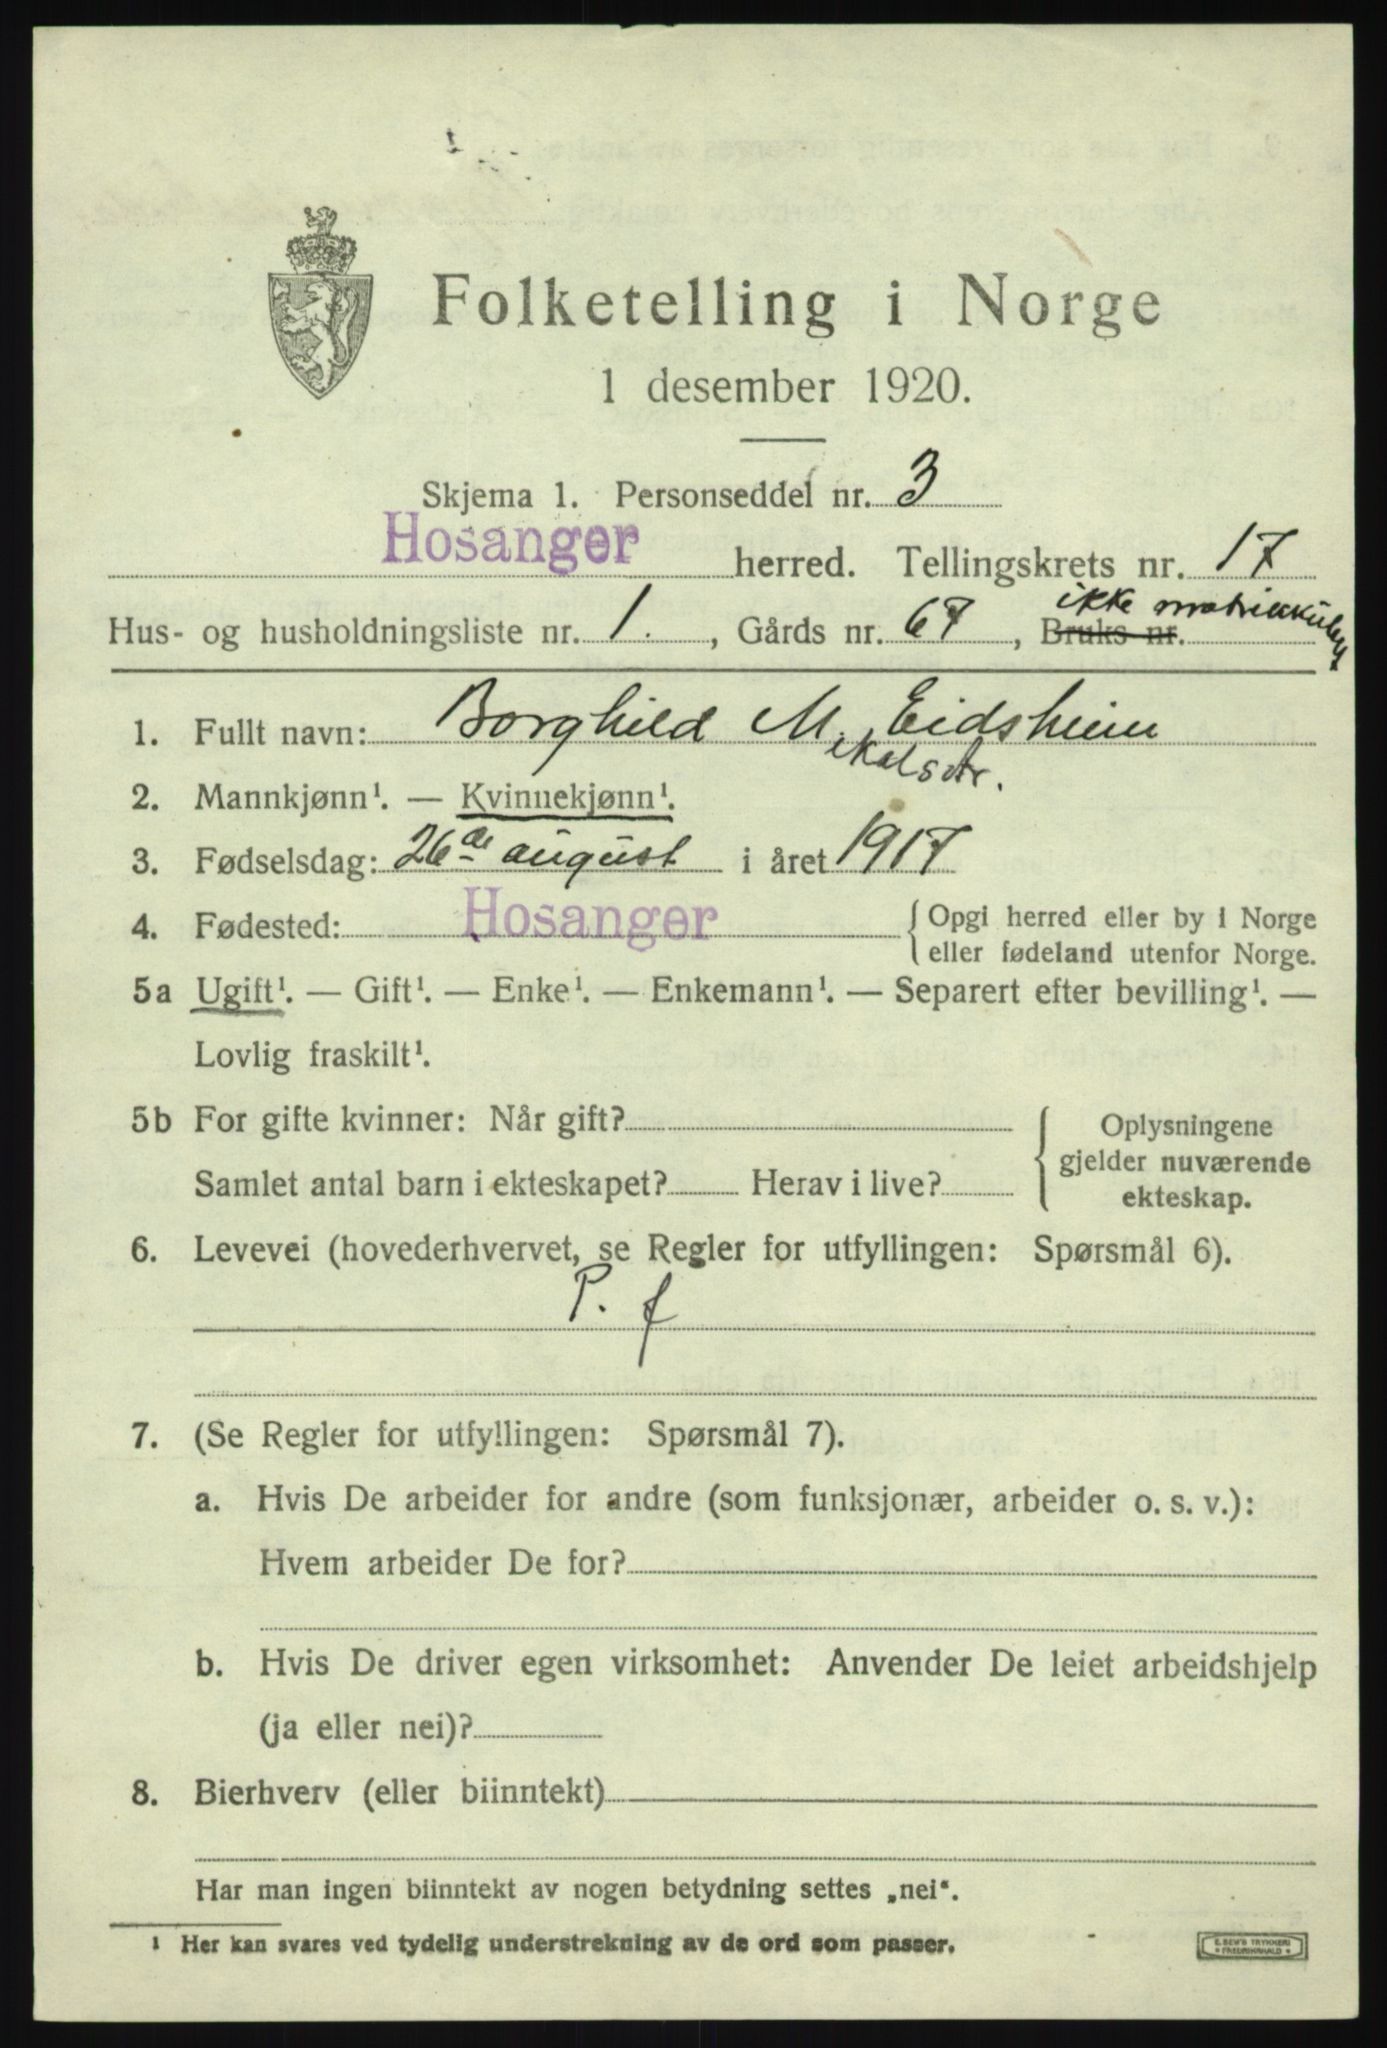 Folketelling i Norge
1 desember 1920.
Skjema 1. Personseddel nr. 3
Hosanger herred. Tellingskrets nr. 17
ikke matrikkulert
Hus- og husholdningsliste nr. 1. , Gårds nr. 67 , Bruks nr.
1. Fullt navn: Borghild M. Eidsheim
ikalsdtr.
2. Mannkjønn¹. — Kvinnekjønn¹.
3. Fødselsdag: 26de august i året 1917
4. Fødested: Hosanger { Opgi herred eller by i Norge
eller fødeland utenfor Norge.
5a Ugift¹. — Gift¹. — Enke¹. — Enkemann¹. — Separert efter bevilling¹. —
Lovlig fraskilt¹.
5b For gifte kvinner: Når gift? { Oplysningene
gjelder nuværende
Samlet antal barn i ekteskapet? Herav i live? ekteskap.
6. Levevei (hovederhvervet, se Regler for utfyllingen: Spørsmål 6).
P. f
7. (Se Regler for utfyllingen: Spørsmål 7).
a. Hvis De arbeider for andre (som funksjonær, arbeider o. s. v.):
Hvem arbeider De for?
b. Hvis De driver egen virksomhet: Anvender De leiet arbeidshjelp
(ja eller nei)?
8. Bierhverv (eller biinntekt)
Har man ingen biinntekt av nogen betydning settes „nei“.
¹ Her kan svares ved tydelig understrekning av de ord som passer.
E. SEM'S TRYKKERI
FREDRIKSHALD